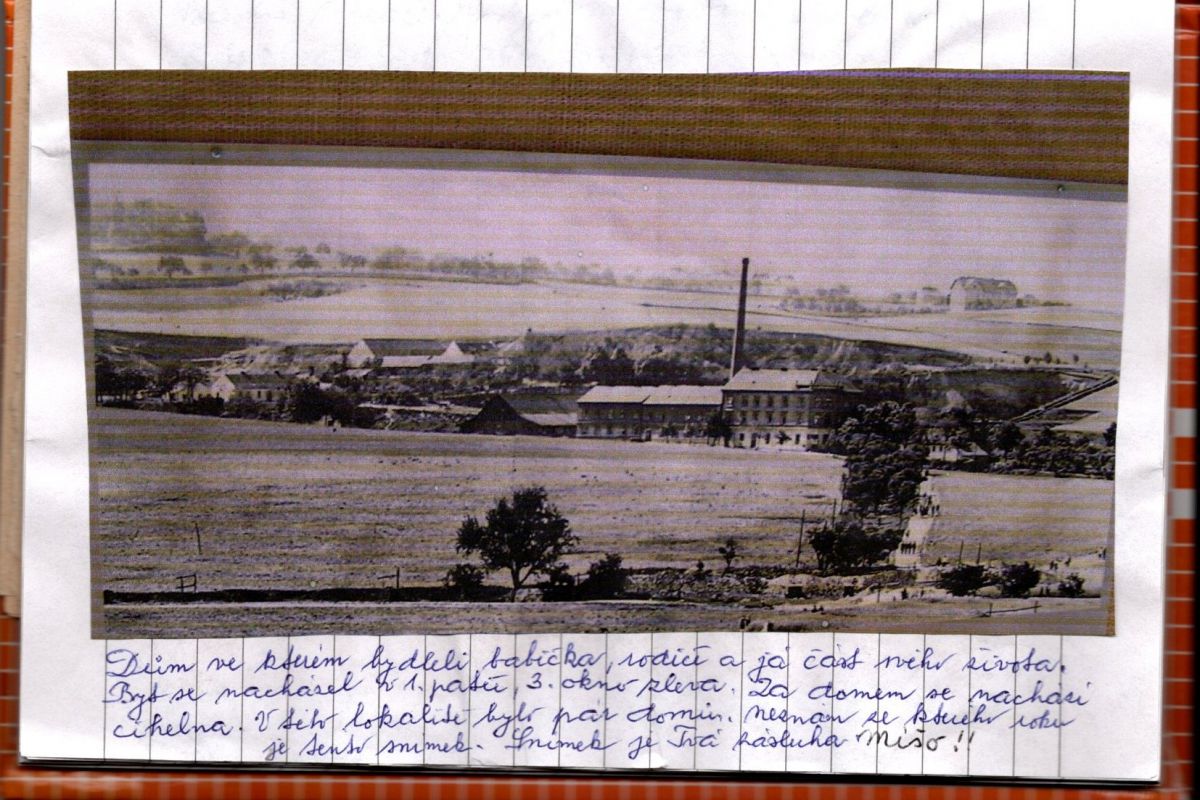 Dům ve kterém bydleli babička, rodiče a já část svého života.
Byt se nacházel v 1. patře, 3. okno zleva. Za domem se nachází
cihelna. V této lokalitě bylo pár domů. Neznám ze kterého roku
je tento snímek. Snímek je Tvá zásluha Míšo!!